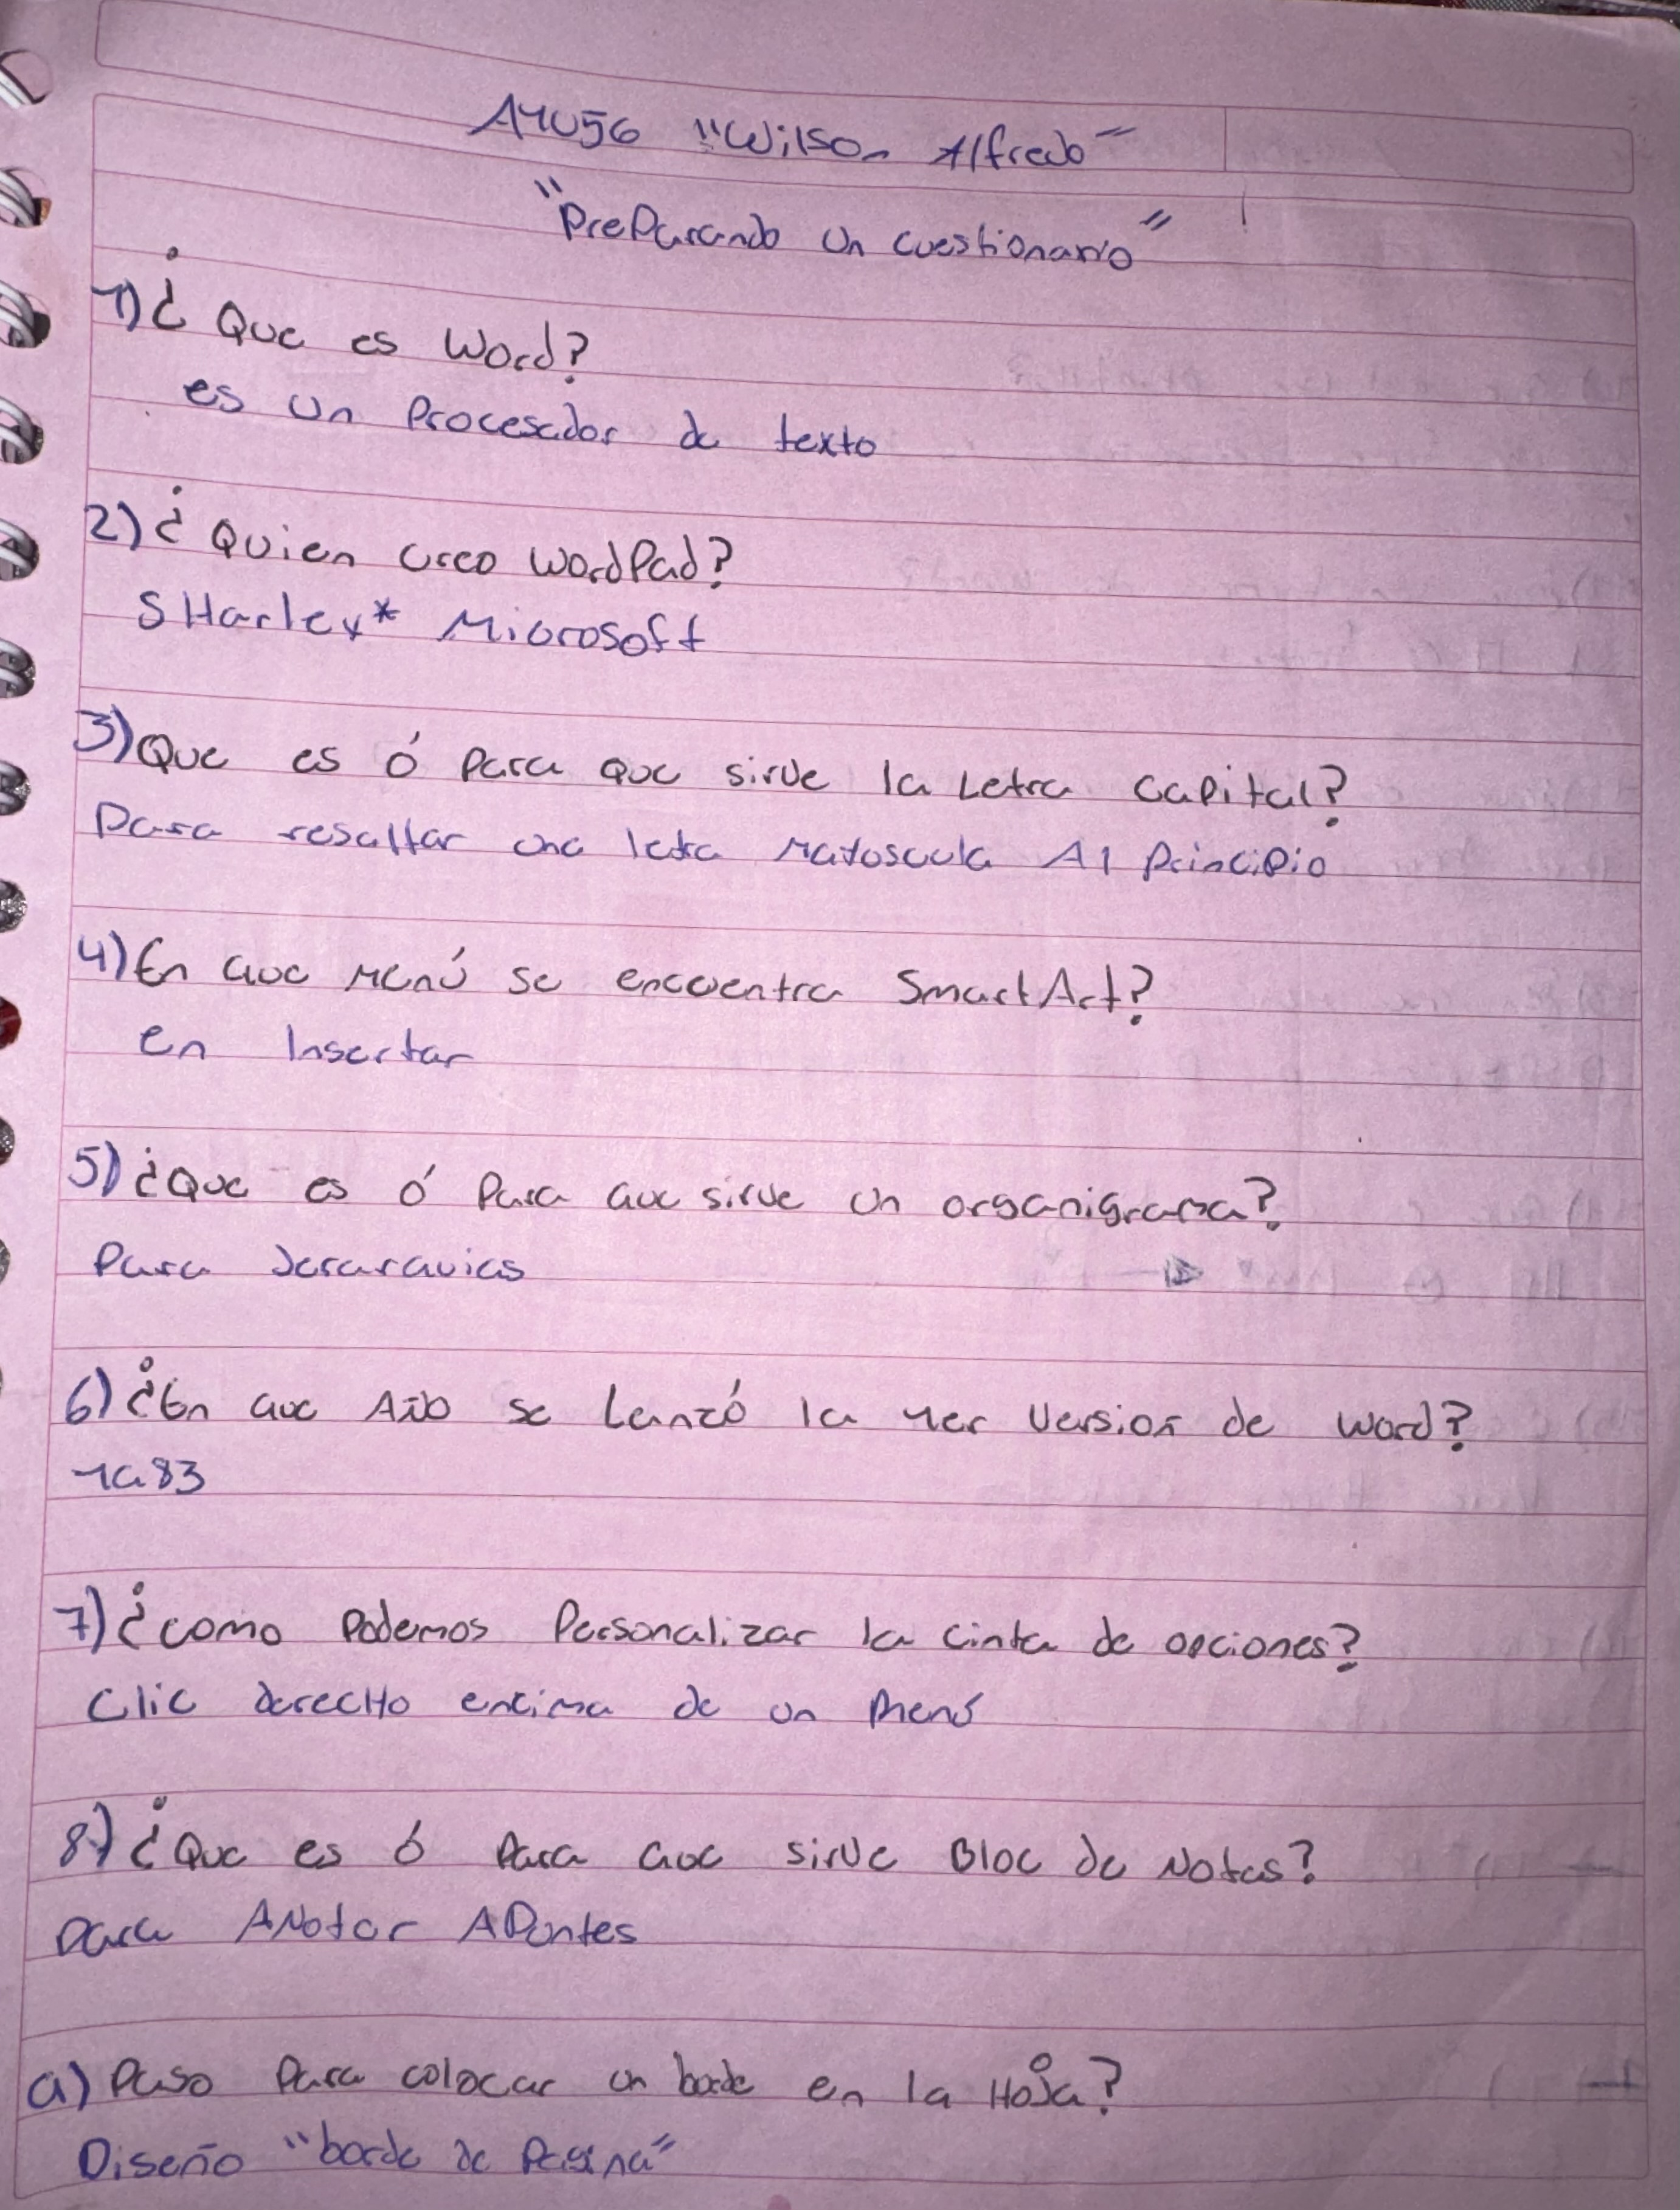 A1056 "Wilson Alfredo"
"PreParando Un cuestionario"
1) ¿ Que es Word?
es un Procesador de texto
2) ¿ Quien creo WordPad?
SHarley* Microsoft
3) Que es ó Para que sirve la Letra capital?
Para resaltar una letra Mayoscula Al Principio
4) En que Menú se encuentra SmartArt?
en Insertar
5) ¿Que es ó Para que sirve un organigrama?
Para
6) ¿En que Año se Lanzó la 1er Version de Word?
1983
7) ¿como Podemos Personalizar la cinta de opciones?
Clic derecHo encima de un Menú
8) ¿Que es ó Para que sirve Bloc de Notas?
Para ANotar APuntes
9) Paso Para colocar un borde en la HoJa?
Diseño "borde de Pagina"